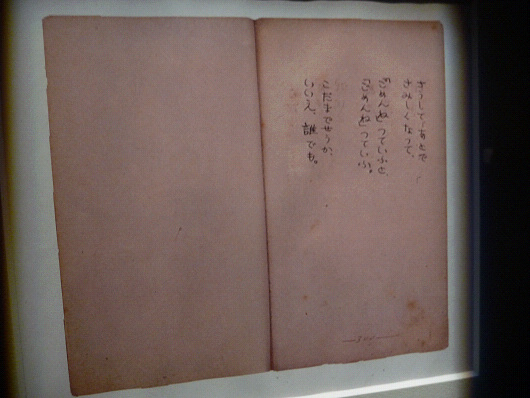 さうして、あとで
さみしくなって、
「ごめんね」っていふと
「ごめんね」っていふ。
こだまでせうか、
いいえ、誰でも。